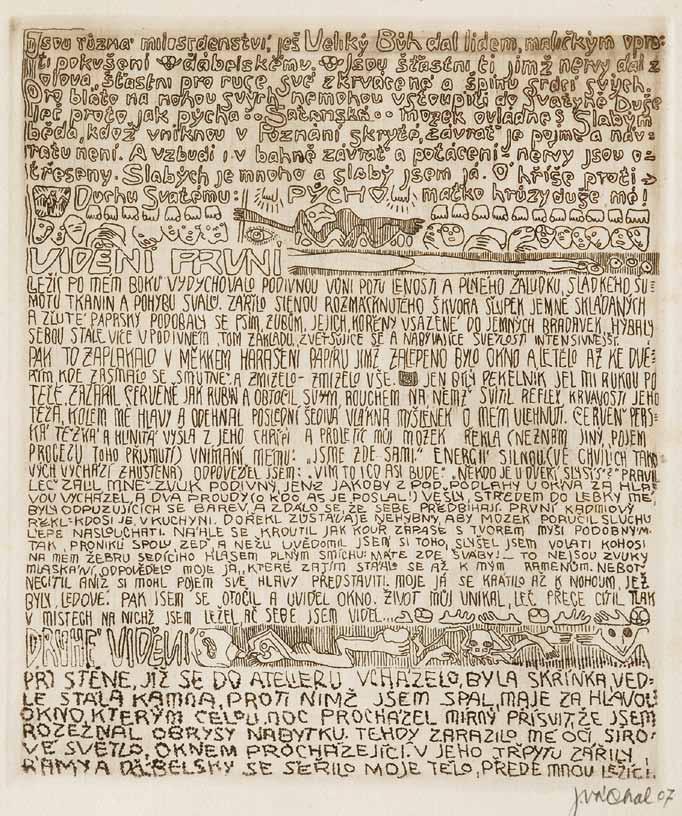 Jsou různá milosrdenství, jež Veliký Bůh dal lidem, maličkým upro-
ti pokušení ďábelskému. Jsou šťastni ti jimž nervy dal z
olova, šťastni pro ruce své zkrvácené a špínu srdcí svých.
Pro bláto na nohou svých nemohou vstoupiti do Svatyně Duše
leč proto, jak pýcha Satanská mozek ovládne? Slabým
běda, když vniknou v Poznání skryté, závrať je pojme a náv-
ratu není. A vzbudí i v bahně závrať a potácení nervy jsou o-
třeseny. Slabých je mnoho a slabý jsem já. Ó hříše proti
Duchu Svatému: PÝCHO matko hrůzy duše mé!
VIDĚNÍ PRVNÍ
LEŽÍC PO MÉM BOKU VYDYCHOVALO PODIVNOU VŮNI POTU LENOSTI A PLNÉHO ŽALUDKU, SLADKÉHO
MOTU TKANIN A POHYBU SVALŮ. ZÁŘILO STĚNOU ROZMÁČKNUTÉHO ŠKVORA SLUPEK JEMNĚ SKLÁDANÝCH
A ŽLUTÉ PAPRSKY PODOBALY SE PSÍM ZUBŮM, JEJICH KOŘENY VSAZENÉ DO JEMNÝCH BRADAVEK, HÝBALY
SEBOU STÁLE VÍCE V PODIVNÉM TOM ZÁKLADU, ZVĚTŠUJÍCE SE A NABÝVAJÍCE SVĚTLOSTI INTENSIVNĚJŠÍ.
PAK TO ZAPLAKALO V MĚKKÉM HARAŠENÍ PAPÍRU JÍMŽ ZALEPENO BYLO OKNO A LETĚLO AŽ KE DVE-
ŘÍM KDE ZASMÁLO SE SMUTNĚ A ZMIZELO - ZMIZELO VŠE. JEN BÍLÝ PEKELNÍK JEL MI RUKOU PO
TĚLE ZAZÁŘIL ČERVENĚ JAK RUBÍN A OBTOČIL SVÝM ROUCHEM NA NĚMŽ SVÍTIL REFLEX KRVAVOSTI JEHO
TĚLA, KOLEM MÉ HLAVY A ODEHNAL POSLEDNÍ ŠEDIVÁ VLÁKNA MYŠLENEK O MÉM ULEHNUTÍ. ČERVEŇ PERS-
KÁ TĚŽKÁ A HLINITÁ VYŠLA Z JEHO A PROLETÍC MŮJ MOZEK ŘEKLA (NEZNÁM JINÝ POJEM
PROCESU TOHO PŘIJMUTÍ) VNÍMÁNÍ MÉMU: "JSME ZDE SAMI." ENERGIÍ SILNOU (VE CHVÍLÍCH TAKO-
VÝCH VYCHÁZÍ ZHUŠTĚNÁ) ODPOVĚDĚL JSEM: "VÍM TO I CO ASI BUDE". "NĚKDO JE U DVEŘÍ, SLYŠÍŠ?" PRAVIL
LEČ ZÁLIL MNE ZVUK PODIVNÝ, JENŽ JAKOBY Z POD PODLAHY U OKNA ZA HLA-
VOU VYCHÁZEL, A DVA PROUDY (O KDO AS JE POSLAL!) VEŠLY STŘEDEM DO LEBKY MÉ
BYLY ODPUZUJÍCÍCH SE BAREV, A ZDÁLO SE, ŽE SEBE PŘEDBÍHAJÍ. PRVNÍ KADMIOVÝ
ŘEKL: KDOSI JE V KUCHYNI. DOŘEKL ZŮSTÁVAJE NEHYBNÝ, ABY MOZEK PORUČIL SLUCHU
LÉPE NASLOUCHATI. NÁHLE SE KROUTIL JAK KOUŘ ZÁPASE S TVOREM MYŠI PODOBNÝM.
TAK, PRONIKLI SPOLU ZEĎ, A NEŽLI UVĚDOMIL JSEM SI TOHO, SLYŠEL JSEM VOLATI KOHOSI
NA MÉM ŽEBRU SEDÍCÍHO HLASEM PLNÝM SMÍCHU: MÁTE ZDE ŠVÁBY! - TO NEJSOU ZVUKY
MLASKÁNÍ, ODPOVĚDĚLO MOJE JÁ, KTERÉ ZATÍM STÁHLO SE AŽ K MÝM RAMENŮM. NEBOŤ
NECÍTIL ANIŽ SI MOHL POJEM SVÉ HLAVY PŘEDSTAVITI. MOJE JÁ SE KRÁTILO AŽ K NOHOUM, JEŽ
BYLY LEDOVÉ. PAK JSEM SE OTOČIL A UVIDĚL OKNO. ŽIVOT MŮJ UNIKAL, LEČ PŘECE CÍTIL TLAK
V MÍSTECH NA NICHŽ JSEM LEŽEL, AČ SEBE JSEM VIDĚL...
DRUHÉ VIDĚNÍ
PŘI STĚNĚ, JÍŽ SE DO ATELIERU VCHÁZELO, BYLA SKŘÍŇKA, VED-
LE STÁLA KAMNA, PROTI NIMŽ JSEM SPAL, MAJE ZA HLAVOU
OKNO, KTERÝM CELOU NOC PROCHÁZEL MÍRNÝ PŘÍSVIT, ŽE JSEM
ROZEZNAL OBRYSY NÁBYTKU. TEHDY ZARAZILO MÉ OČI SIRO-
VÉ SVĚTLO, OKNEM PROCHÁZEJÍCÍ. V JEHO TŘPYTU ZÁŘILY
RÁMY A ĎÁBELSKY SE ŠEŘILO MOJE TĚLO, PŘEDE MNOU LEŽÍCÍ.
J. Váchal 07